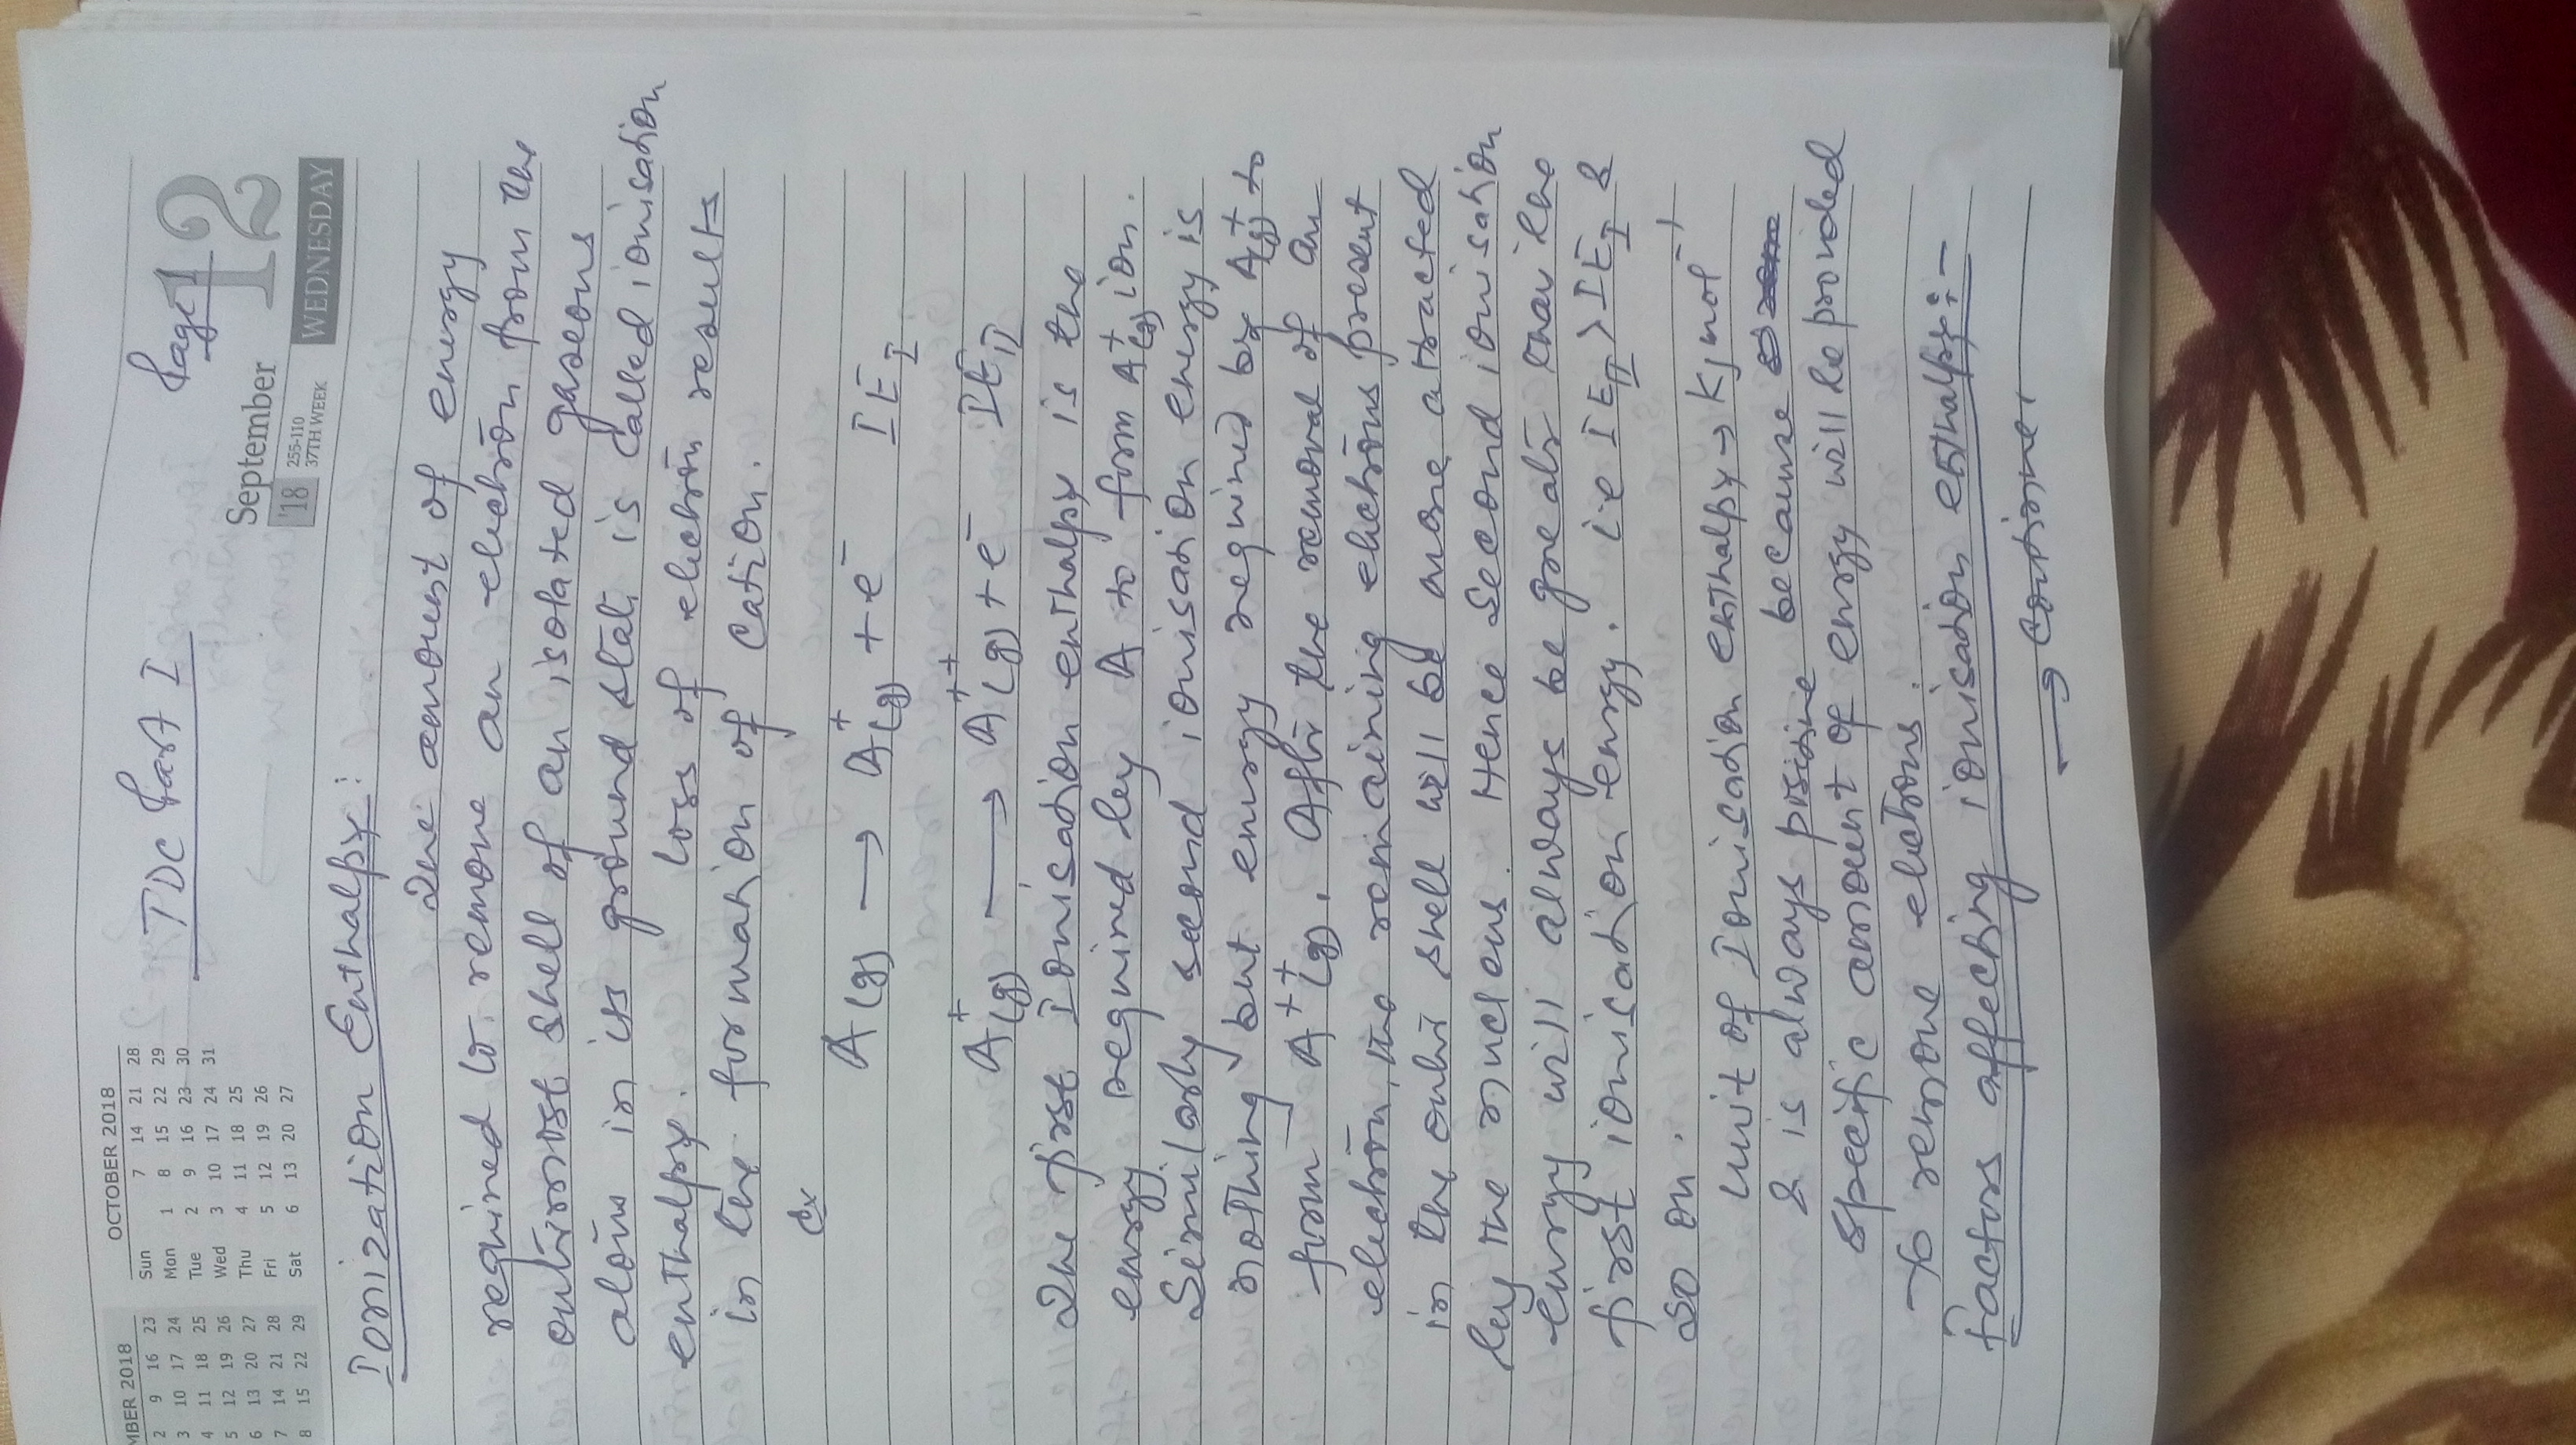 TDC Part I
Page 1
12
September
'18
255-110
37TH WEEK
WEDNESDAY
MBER 2018
2 9 16 23
3 10 17 24
4 11 18 25
5 12 19 26
6 13 20 27
7 14 21 28
8 15 22 29
OCTOBER 2018
Sun 7 14 21 28
Mon 1 8 15 22 29
Tue 2 9 16 23 30
Wed 3 10 17 24 31
Thu 4 11 18 25
Fri 5 12 19 26
Sat 6 13 20 27
Ionization Enthalpy:
The amount of energy
required to remove an electron from the
outermost shell of an isolated gaseous
atom in its ground state is called ionisation
enthalpy. loss of electron results
in the formation of cation.
Ex A(g) → A+(g) + e- IE I
A+(g) → A++(g) + e- IE II
The first Ionisation enthalpy is the
energy required by A to form A+(g) ion.
Similarly second ionisation energy is
nothing but energy required by A+(g) to
form A++(g). After the removal of an
electron, the remaining electrons present
in the outer shell will be more attracted
by the nucleus. Hence Second ionisation
energy will always be greater than the
first ionisation energy. ie IE II > IE I &
so on.
Unit of Ionisation enthalpy → KJ mol-1
& is always positive because
specific amount of energy will be provided
to remove electrons.
Factors affecting ionisation enthalpy:-
→ continue